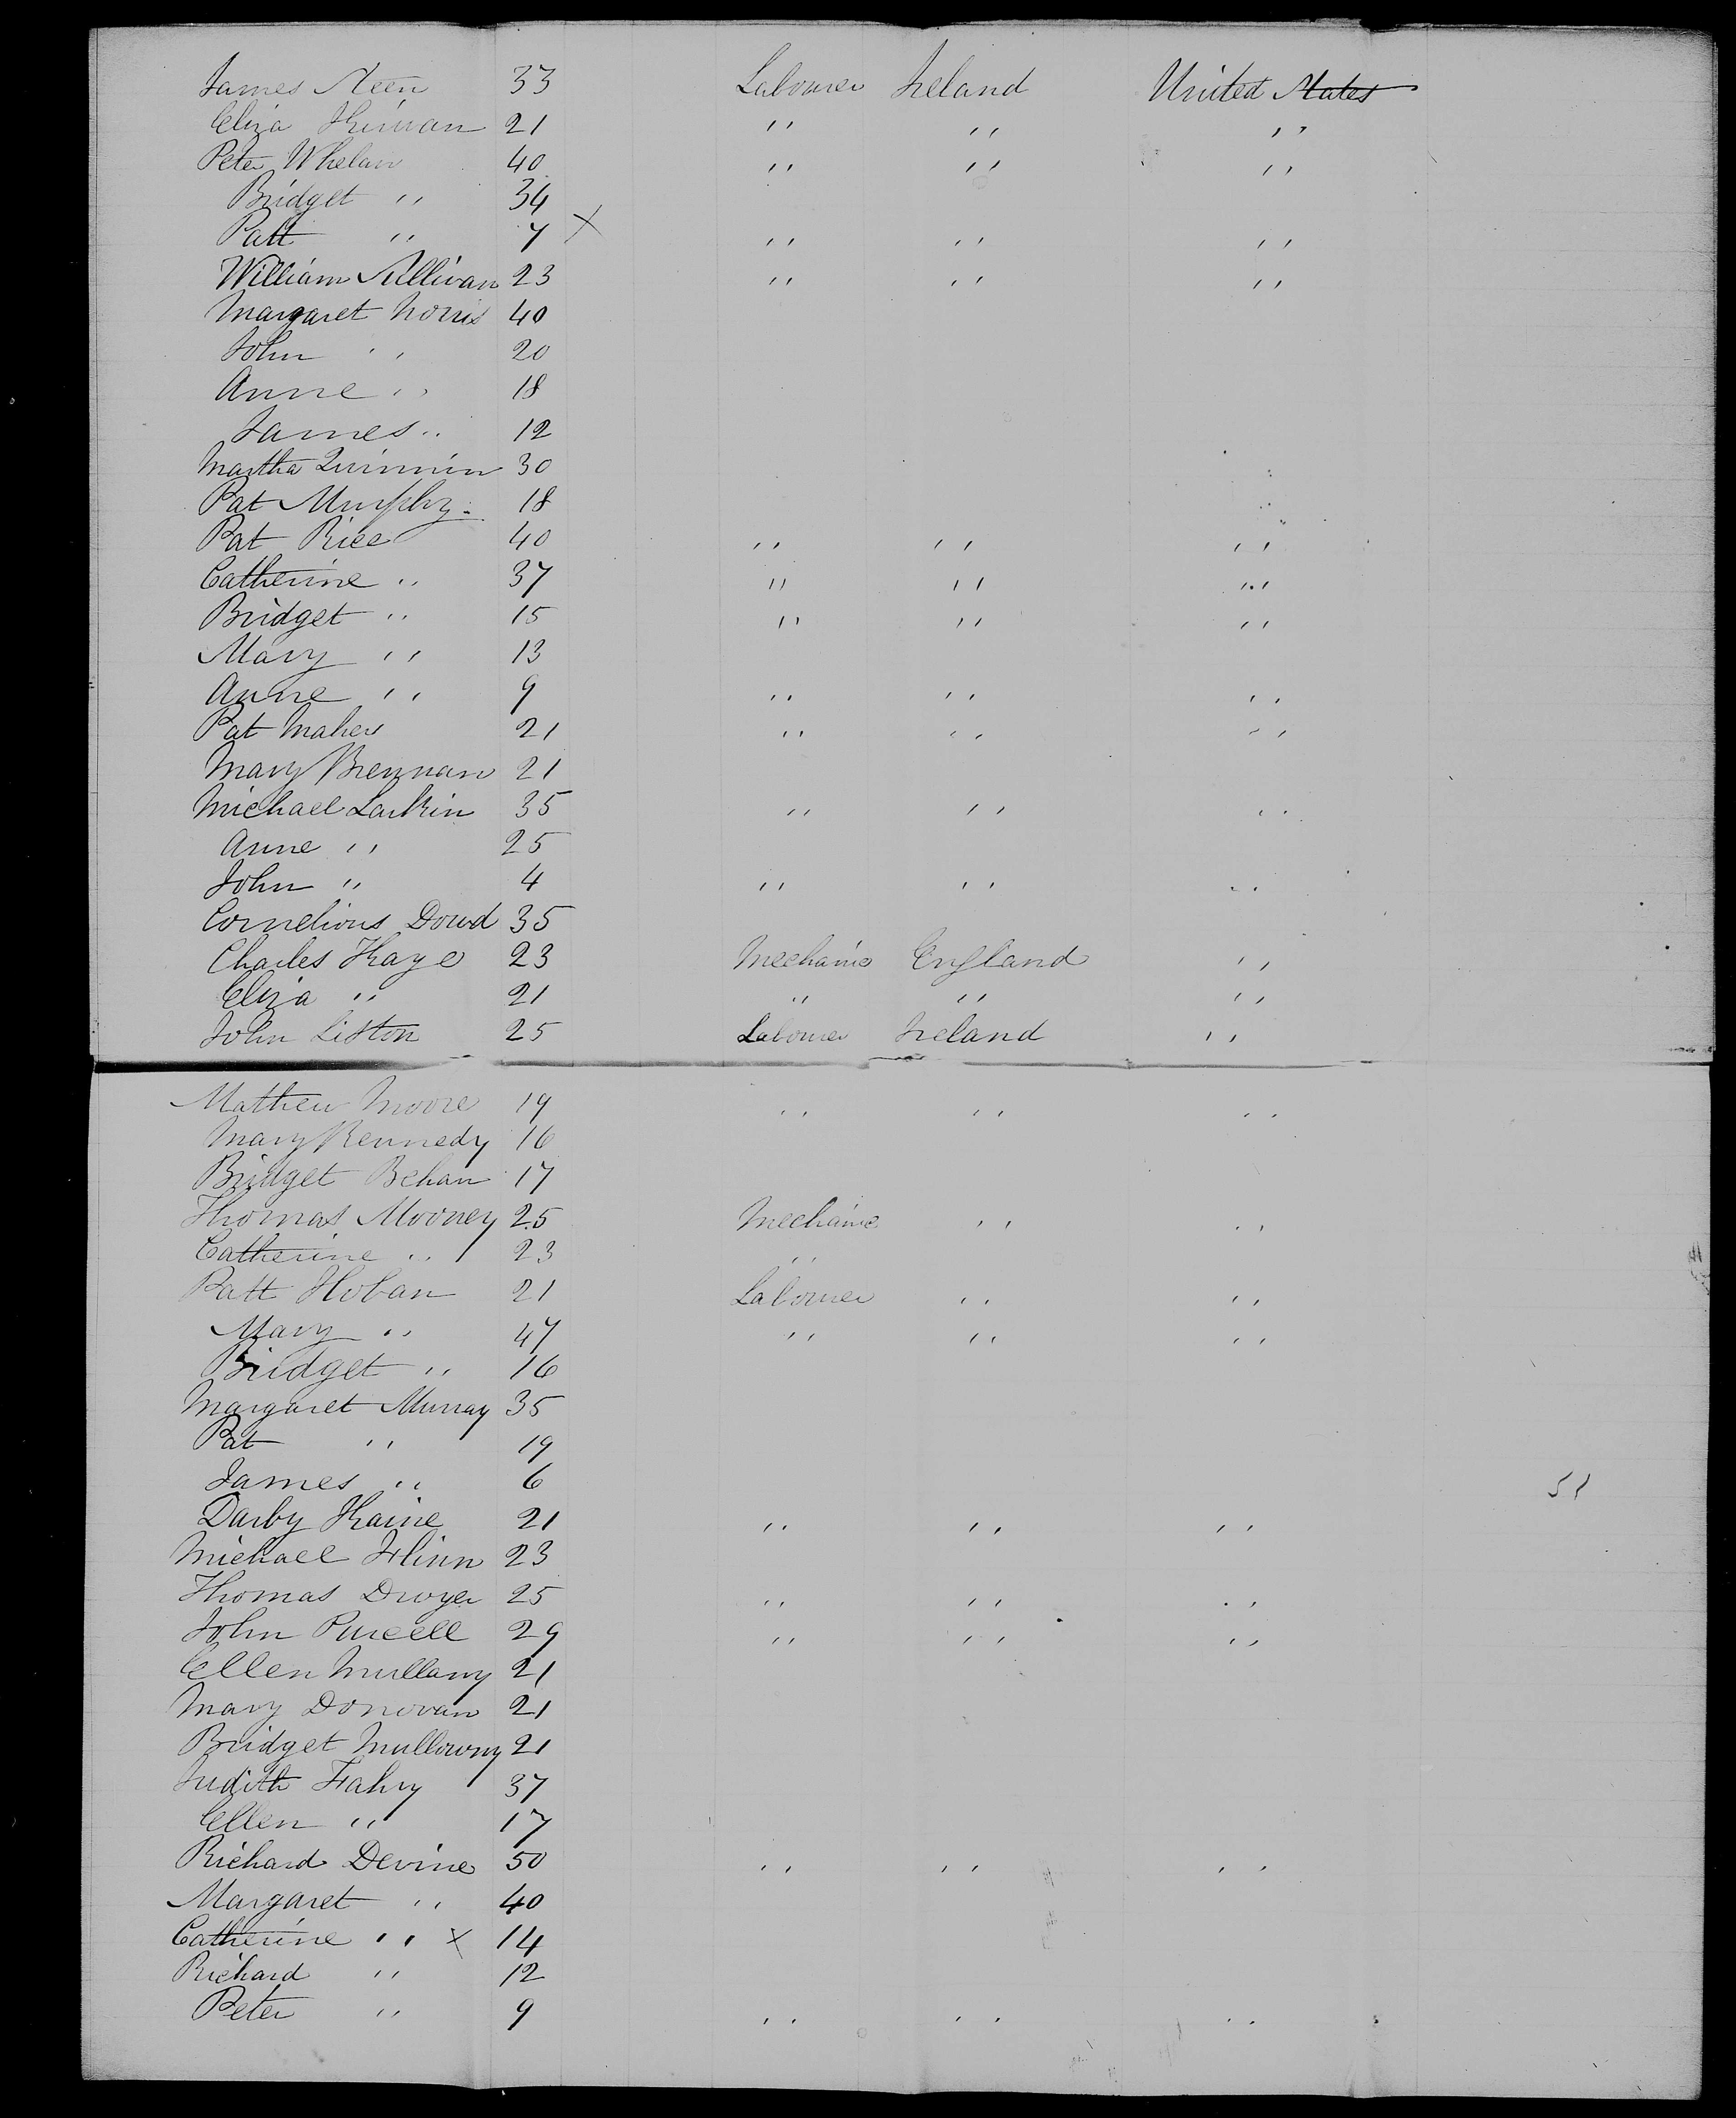 James Keen 33 Labourer Ireland United States
Eliza Kirwan 21 " " "
Peter Whelan 40 " " "
Bridget " 34
Patt " 7 X " " "
William Sullivan 23 " " "
Margaret Norris 40
John " 20
Anne " 18
James " 12
Martha Quinnin 30
Pat Murphy 18
Pat Rice 40 " " "
Catherine " 37 " " "
Bridget " 15 " " "
Mary " 13
Anne " 9 " " "
Pat Maher 21 " " "
Mary Brennan 21
Michael Larkin 35 " " "
Anne " 25
John " 4 " " "
Cornelious Dowd 35
Charles Kaye 23 Mechanic England "
Eliza " 21 " " "
John Liston 25 Labourer Ireland "
Mathew Moore 19 " " "
Mary Kennedy 16
Bridget Behan 17
Thomas Mooney 25 Mechanic " "
Catherine " 23 "
Patt Hoban 21 Labourer " "
Mary " 47 " " "
Bridget " 16
Margaret Murray 35
Pat " 19
James " 6
51
Darby Kaine 21 " " "
Michael Flinn 23
Thomas Dwyer 25 " " "
John Purcell 29 " " "
Ellen Mullany 21
Mary Donovan 21
Bridget Mullowny 21
Judith Fahy 37
Ellen " 17
Richard Devine 50 " " "
Margaret " 40
Catherine " X 14
Richard " 12
Peter " 9 " " "